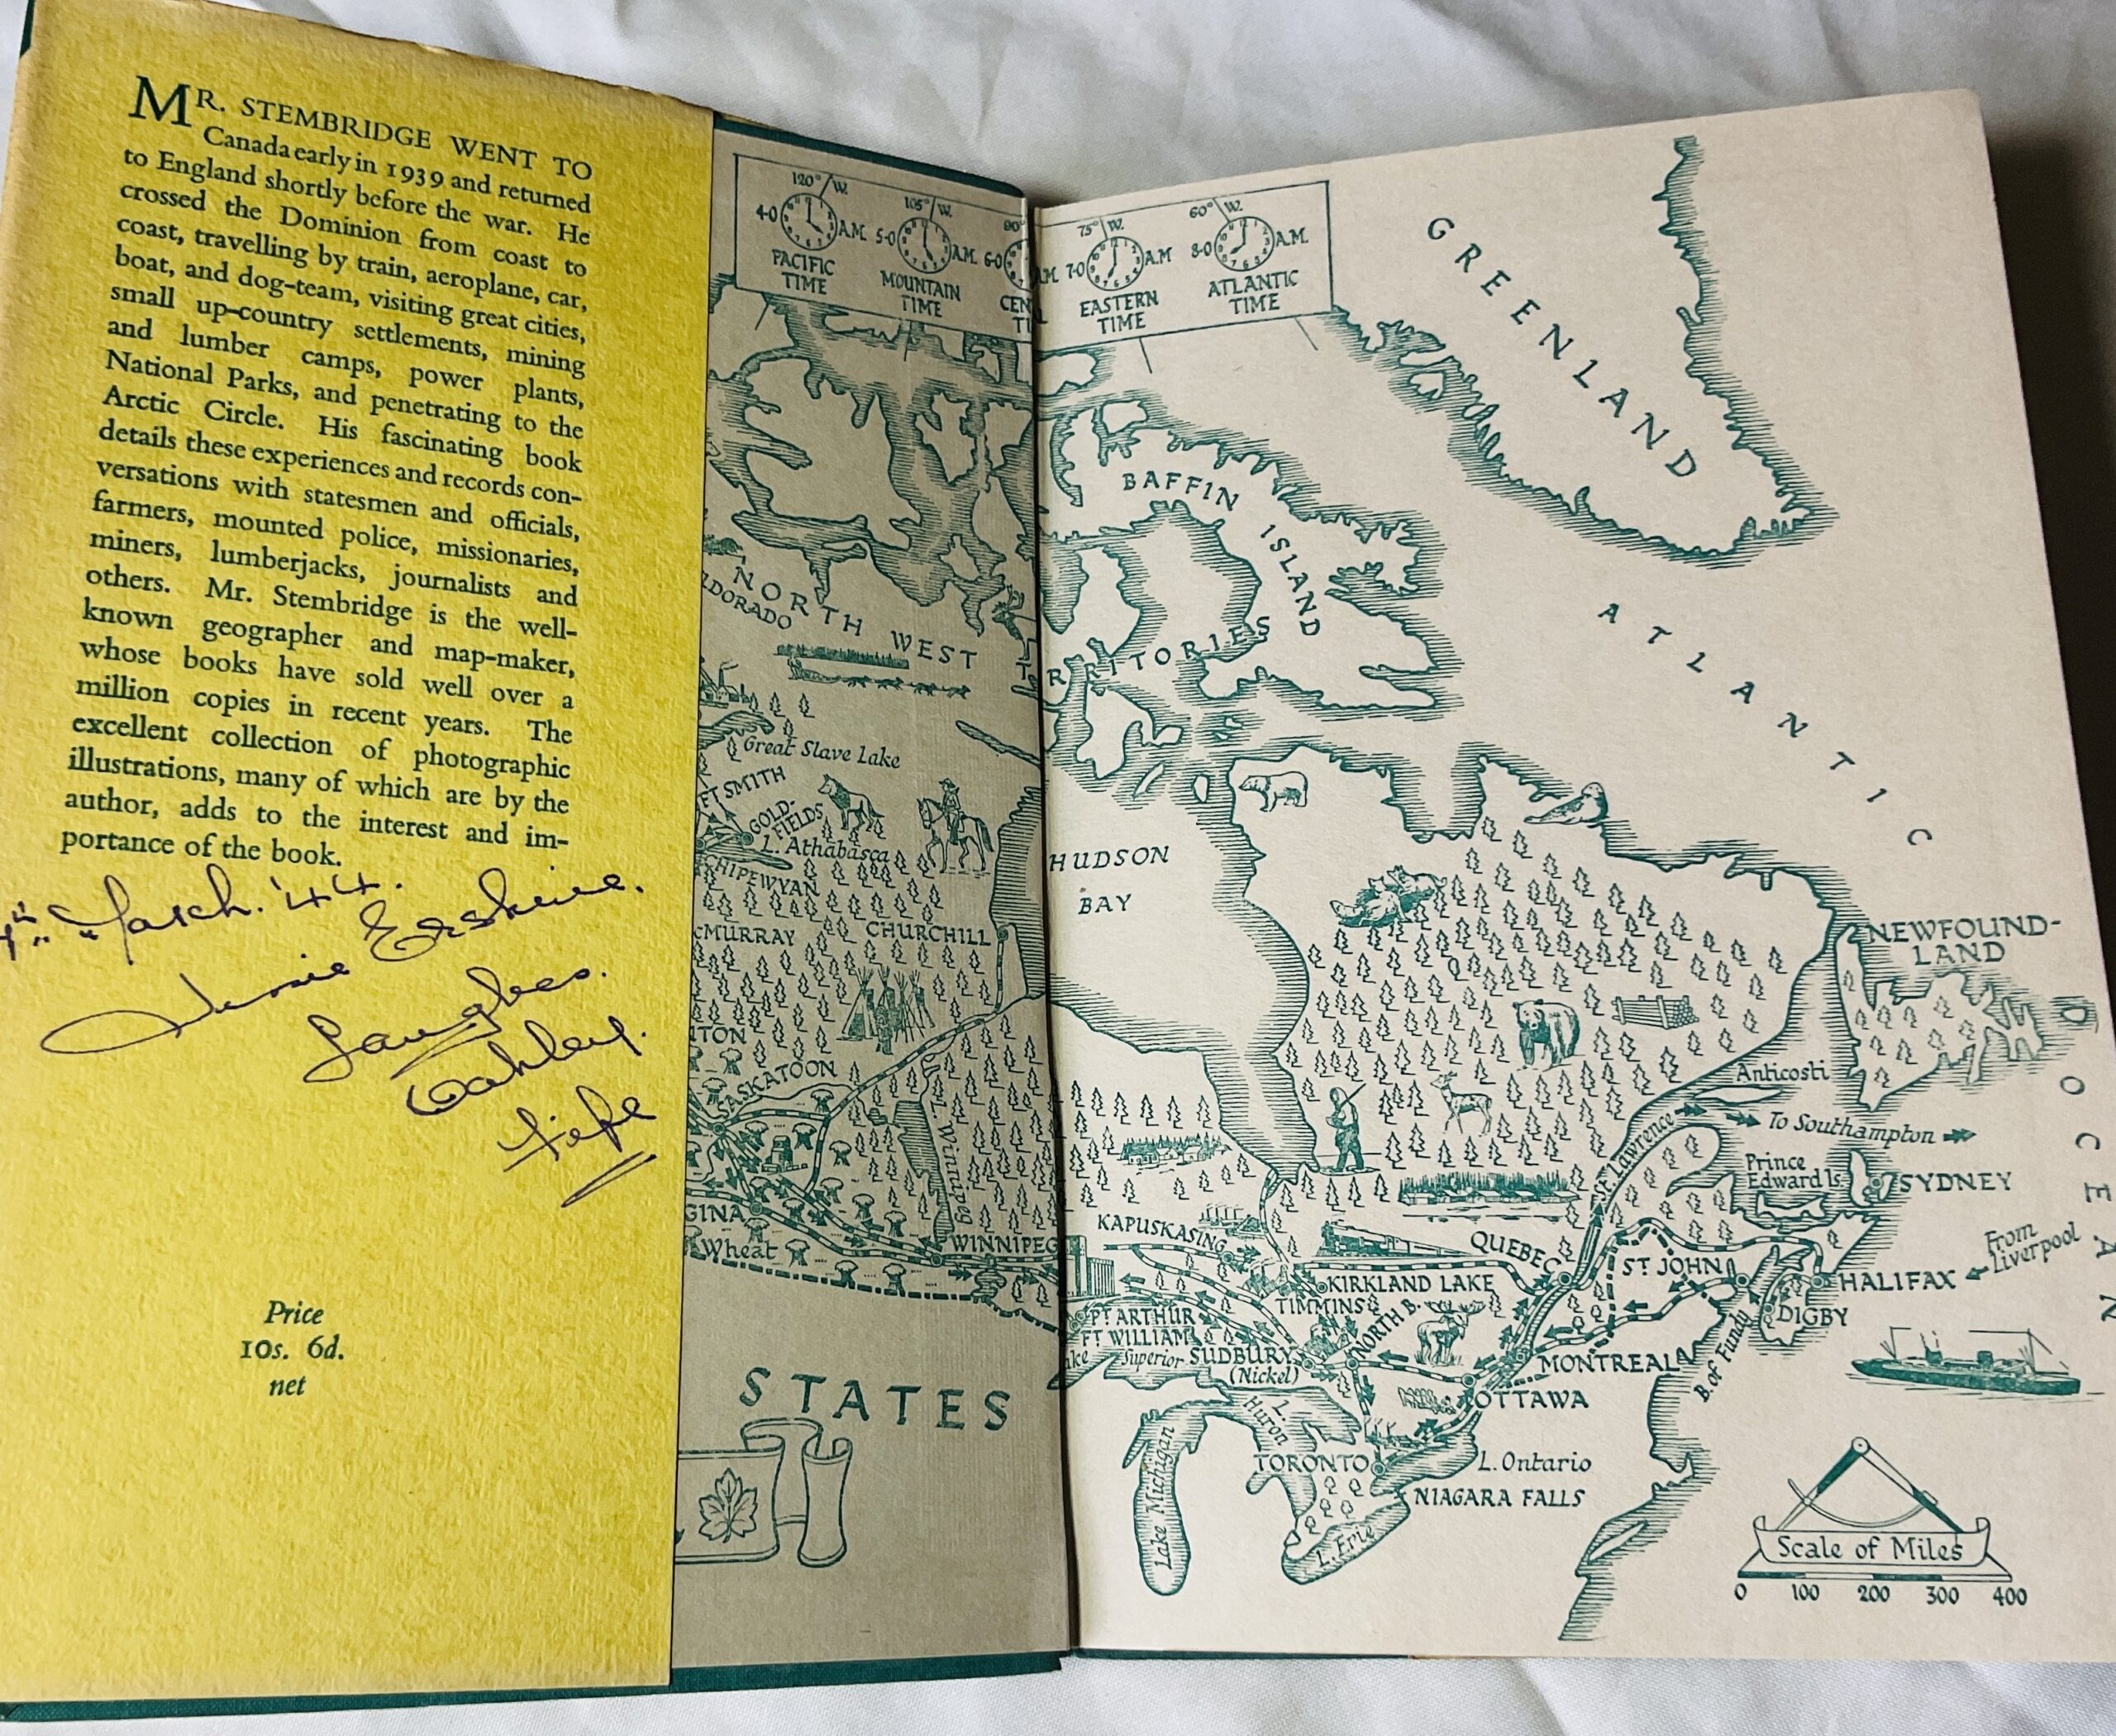 MR. STEMBRIDGE WENT TO
Canada early in 1939 and returned
to England shortly before the war. He
crossed the Dominion from coast to
coast, travelling by train, aeroplane, car,
boat, and dog-team, visiting great cities,
small up-country settlements, mining
and lumber camps, power plants,
National Parks, and penetrating to the
Arctic Circle. His fascinating book
details these experiences and records con-
versations with statesmen and officials,
farmers, mounted police, missionaries,
miners, lumberjacks, journalists and
others. Mr. Stembridge is the well-
known geographer and map-maker,
whose books have sold well over a
million copies in recent years. The
excellent collection of photographic
illustrations, many of which are by the
author, adds to the interest and im-
portance of the book.
March. '44.
Erskine.
Fife
Price
10s. 6d.
net
120° W.
4-0 A.M.
PACIFIC
TIME
105° W.
5-0 A.M.
MOUNTAIN
TIME
90°
6-0
75° W.
7-0 A.M
EASTERN
TIME
60° W.
8-0 A.M.
ATLANTIC
TIME
GREENLAND
BAFFIN ISLAND
ATLANTIC
OCEAN
NORTH WEST
TERRITORIES
LDORADO
Great Slave Lake
FT SMITH
GOLD-
FIELDS
L. Athabasca
CHIPEWYAN
CMURRAY
CHURCHILL
HUDSON
BAY
NEWFOUND-
LAND
TON
SASKATOON
L. Winnipeg
GINA
Wheat
WINNIPEG
STATES
Anticosti
St. Lawrence
To Southampton
Prince
Edward Is.
SYDNEY
From
Liverpool
KAPUSKASING
QUEBEC
ST JOHN
HALIFAX
KIRKLAND LAKE
TIMMINS
NORTH B.
DIGBY
B. of Fundy
PT ARTHUR
FT WILLIAM
ke Superior
SUDBURY
(Nickel)
MONTREAL
OTTAWA
L.
Huron
Lake Michigan
TORONTO
L. Ontario
NIAGARA FALLS
L. Erie
Scale of Miles
0 100 200 300 400